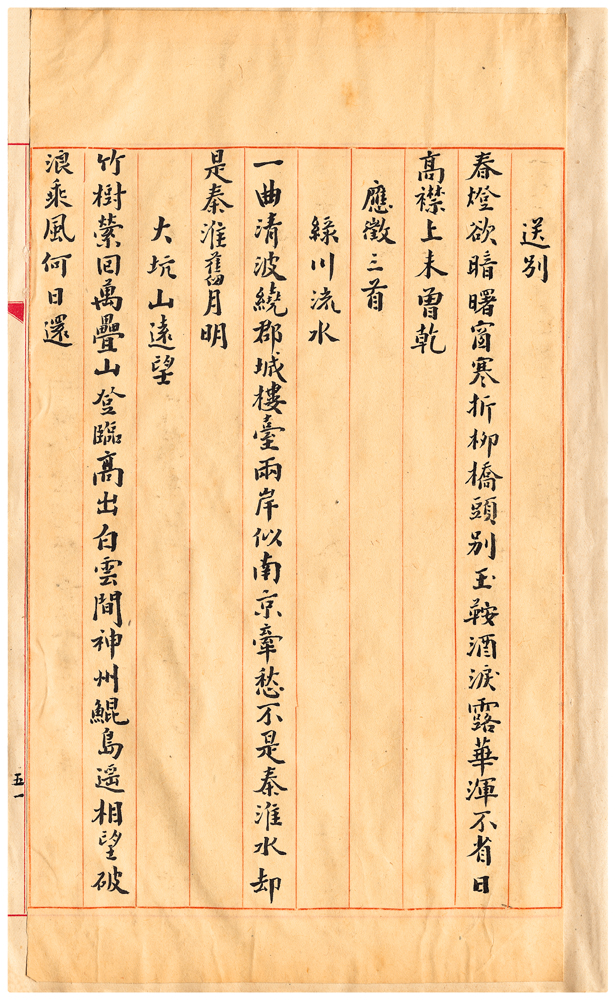 送別
春燈欲暗曙窗寒折柳橋頭別玉鞍酒淚露華渾不省日
高襟上未曾乾
應徵三首
綠川流水
一曲清波繞郡城樓臺兩岸似南京牽愁不是秦淮水却
是秦淮舊月明
大坑山遠望
竹樹縈回萬疊山登臨高出白雲間神州鯤島遥相望破
浪乘風何日還
五一